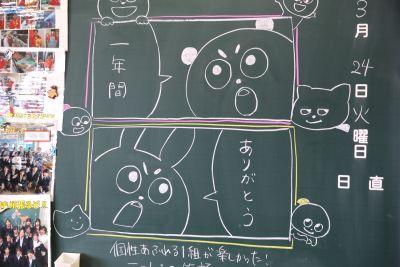 一年間
ありがとう
個性あふれる1組が楽しかった!
3月24日火曜日
日直